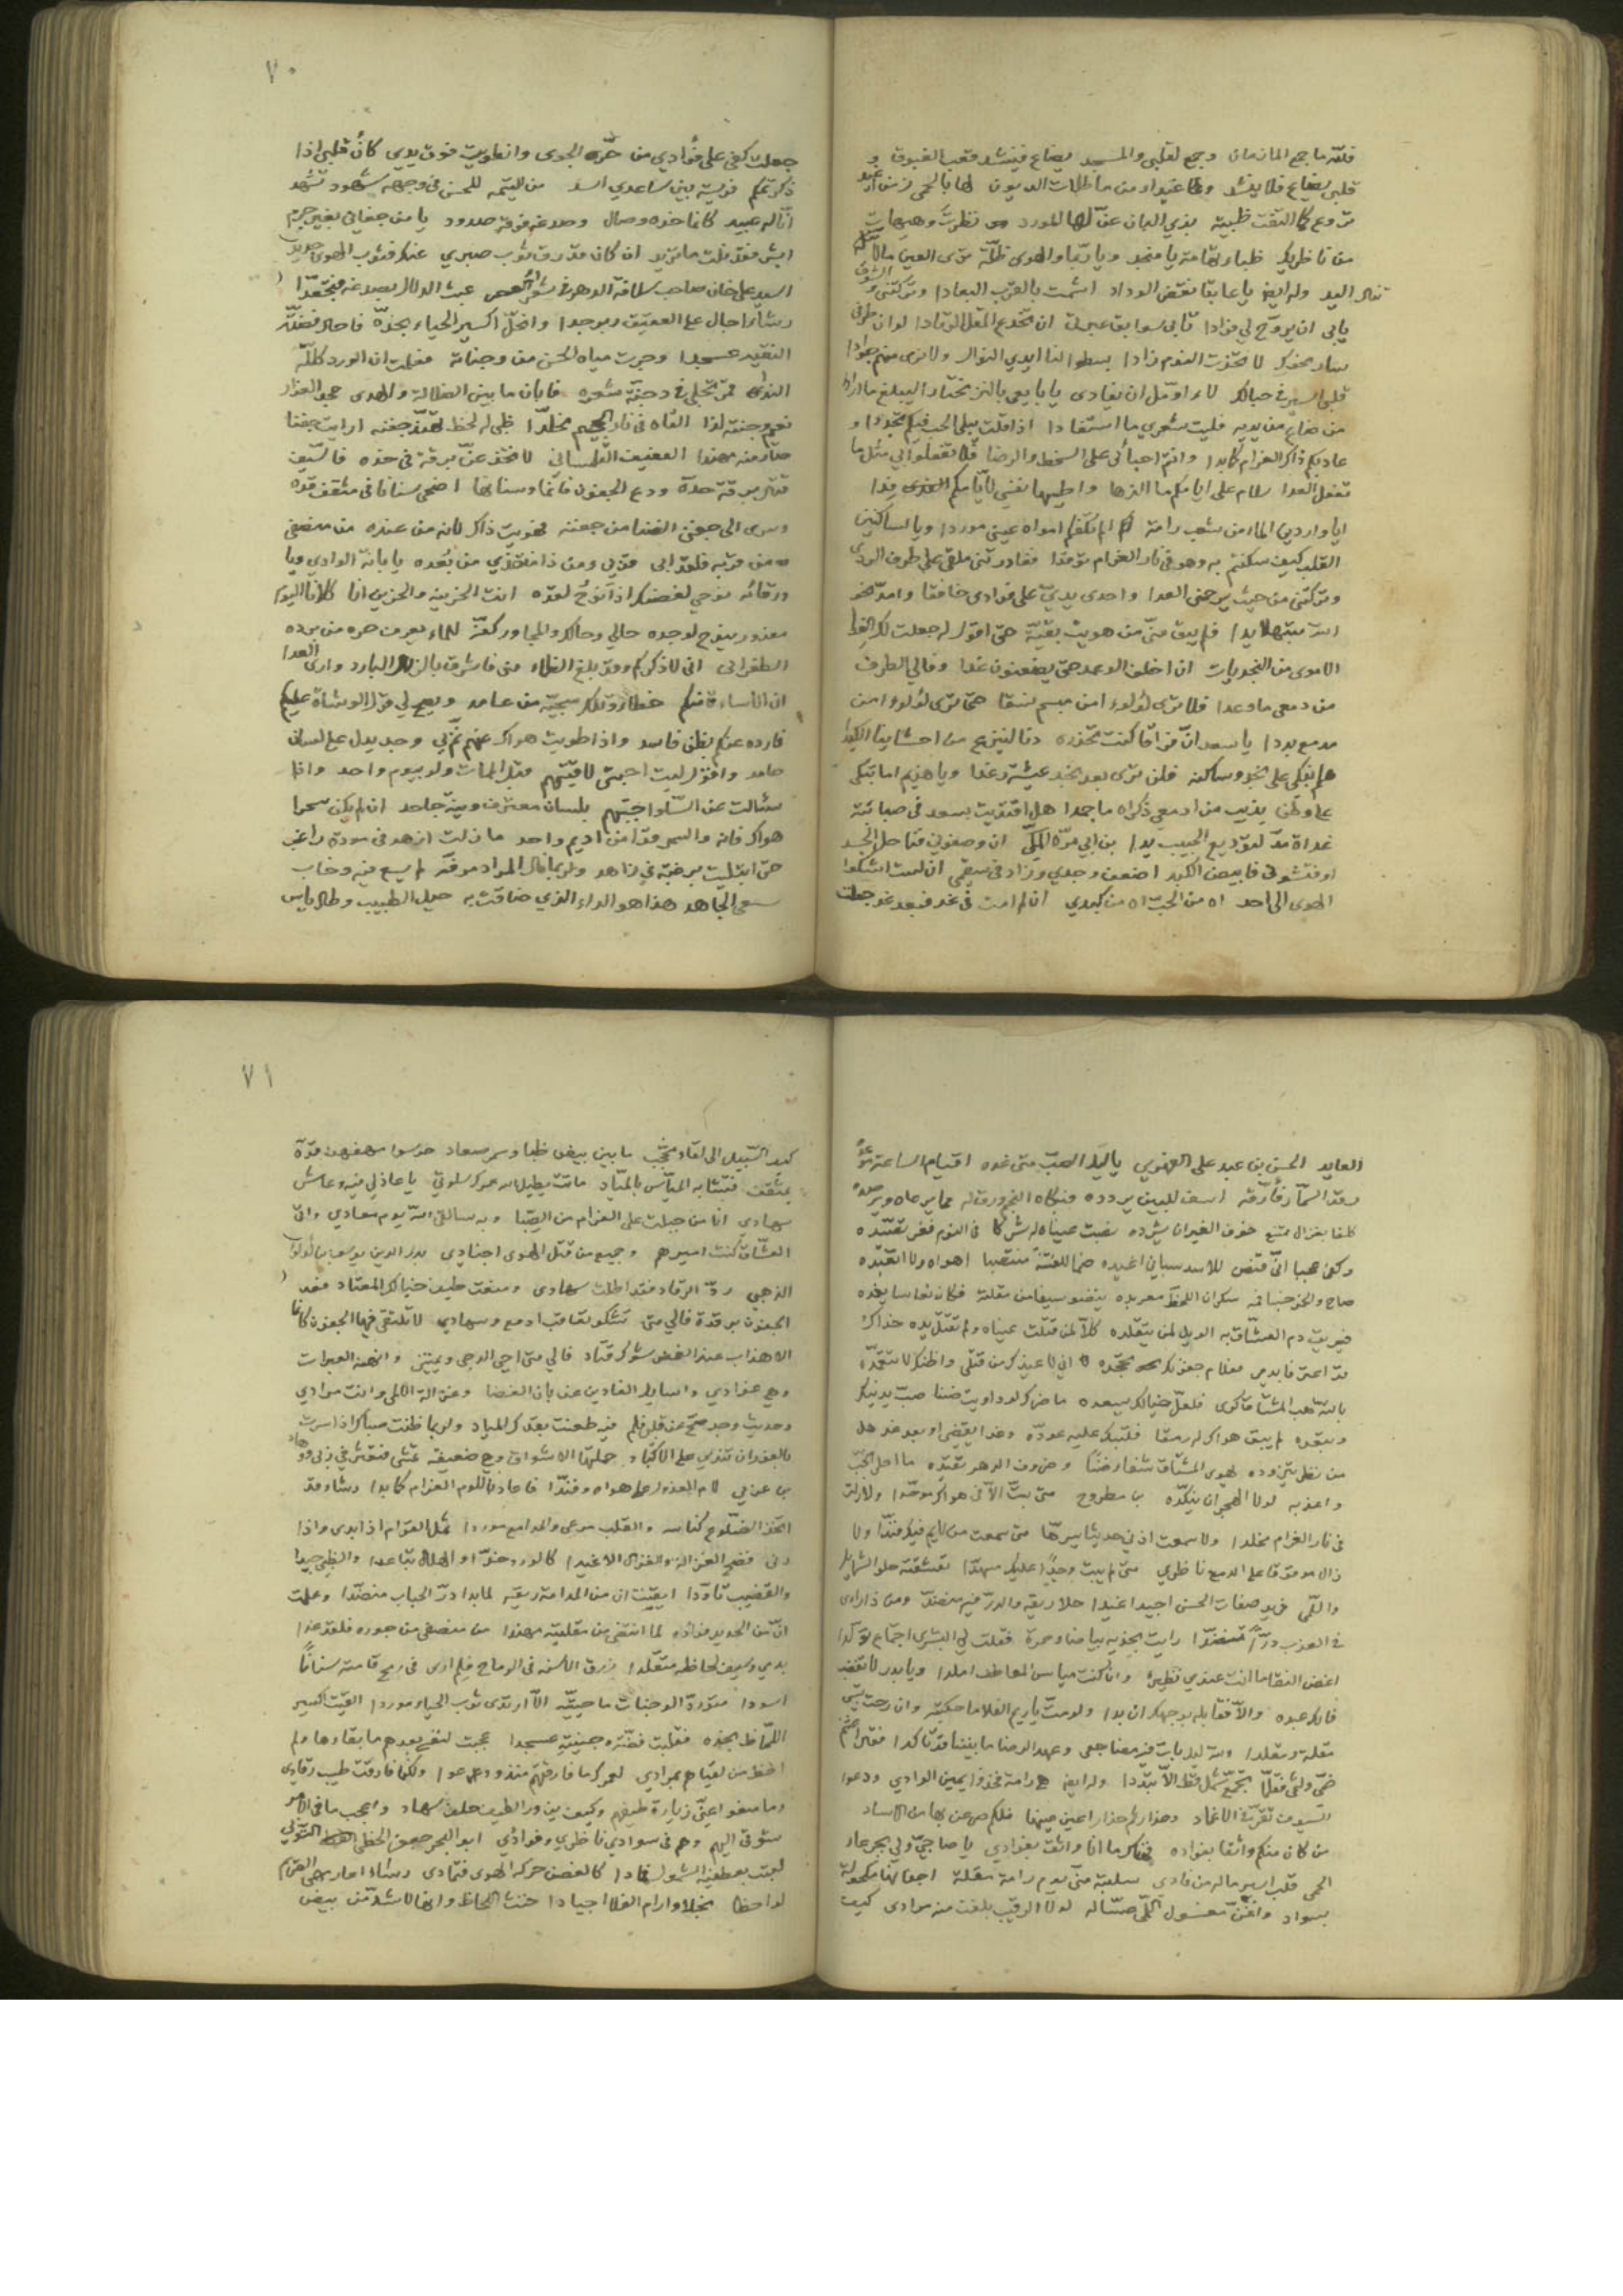 فلله ما جمع المازمان وجمع لقلبي والمسجد يضاع فينشد قعب الغبوق و
قلبي يضاع فلا ينشد وغيداء من ماطلات الديون لها بالحمى
تروع كما التفت ظبية بذي البان عنّ لها المورد نظرت وهيهات
من ناظريك ظباء تهامة يا منجد ويا ربما والهوى ظلّة ترى العين ما لا
تنال اليد وله ايضا يا عابثا نقض الوداد اشمت بالقرب البعادا وتركتني و الشوق
يابى ان يروّح لي فؤادا تابى سوابق عبرتي ان تخدع المقل الرقادا لو ان طرفي
سار نحوك لا تخذت النوم زادا بسطوا لنا ايدي النوال ولا نرى منهم جوادا
قلبي اسير في حبالك لا اؤمل ان يفادى يا بايعي بالنزر تختار المبيع ما ارادا
من ضاع من يديه فليت شعري ما استفادا اذا قلت يبلى الحب فيكم تجددا و
عادبكم ذاك الغرام كما بدا وانتم احبائي على السخط والرضا فلا تفعلوا بي مثل ما
تفعل العدا سلام على ايامكم ما الذها واطيبها نفسي لايامكم فدا
ايا واردين الماء من شعب رامة امواه عيني موردا ويا ساكنين
القلب كيف سكنتم به وهو في نار الغرام توقدا فغادرتني ملقى على طرف الردى
وتركتني من حيث يرحمني العدا واحدى يديّ على فؤادي خافقا وامدّ نحو
الله مبتهلا يدا فلم يبق منّي من هويت بقيّة حتى اقول له جعلت لك الفدا
الاموي من النجديات ان اخلف الوعد حتى يظعنون غدا وفالي الطرف
من دمعي ما وعدا فلا ترى لؤلؤا من مبسم نسقا حتى ترى لؤلؤا من
مدمع بددا يا سعد انّ فراقا كنت تحذره دنا لينزع من احشاينا الكبدا
هلم نبكي على نجد وساكنه فلن ترى بعد نجد عيشة رغدا ويا هذيم اما تبكي
على وطن يذيب من ادمعي ذكراه ما جمدا هل اقتديت بسعد في صبابته
غداة مدّ لتوديع الحبيب يدا بن ابي مرّة المكّي ان وصفوني فناحل الجسد
او فتشوني فابيض الكبد اضعف وجدي وزاد في سقمي ان لست اشكو
الهوى الى احد اه من الحب اه من كبدي ان لم امت في غد فبعد غد جعلت
٧٠
جعلت كفي على فؤادي من حرّ الجوى وانطويت فوق يدي كانّ قلبي اذا
ذكرتكم فريسة بين ساعدي اسد من لليتمه للحسن في وجهه شهود تشهد
انّا له عبيد كانما خده وصال وصدغه فوقه صدود يا من جفاني بغير جرم
ابشر فقد نلت ما تريد ان كان قد رق ثوب صبري عنك فثوب الهوى جديد
السيد علي خان صاحب سلافة العصر عبث الدلال بصدغه فتجعّدا
رشأ اجال على العقيق زبرجدا واحلّ اكسير الحياء بخدّه فاحال فضة
النقيد عسجدا وجرت مياه الحسن من وجناته فعلمت ان الورد كلله
الندى قمر تجلى في دجنّة شعره فابان ما بين الضلالة والهدى
نعيم وجنته لذا القاه في نار الجحيم مخلّدا ظبي له لحظ جفنه ارايت جفنا
صار منه مهندا العفيف التلمساني لا تخف عن برقة في خده فالسيف
قتال برقة حدّه ودع الجفون فانما وسنانها اضحى سنانا في مثقف قدّه
وسرى الى جفني الضنا من جفنه فهويت ذاك لانه من عنده من منصفي
من قربه فلقد ابى قربي ومن ذا منقذي من بعده يا بانة الوادي ويا
ورقائه نوحي لغصنك اذ انوح لقدّه انت الحزينة والحزين انا كلانا اليوم
معذور ينوح لوجده حالي وحالك والمجاور كفّه للماء يعرف حره من برده
الطغرائي اني لاذكركم وقد بلغ الظماء مني فاشرق بالزلال البارد وارى العدا
ان الاساءة منكم خطا وتلك سجيّة من عامد ويصح لي قول الوشاة عليكم
فارده عنكم بظن فاسد واذا طويت هواك عنهم نمّ بي وجد يدل على لسان
حامد واقول ليت احبتي لاقيتهم قبل الممات ولو بيوم واحد واذا
سئالت عن السلو اجبتهم بلسان معترف ونية جاحد ان لم يكن سحرا
هواك فانه والسحر قدّا من اديم واحد ما زلت ازهد في مودة راغب
حتى ابتليت برغبة في زاهد ولربما نال المراد موفّه لم يسع فيه وخاب
سعي الجاهد هذا هو الداء الذي ضاقت به حيل الطبيب وطال ياس
العايد الحسن بن عبد على القهوني يا ليل الصبّ متى غده اقيام الساعة موعده
رقد السمّار فأرّقه اسف للبين يردده فبكاه النجم ورق له مما يرعاه ويرصده
كلفا بغزال ممتنع خوف الغيران يشرده نصبت عيناه له شركا في النوم فعز تصيّده
وكفى عجبا انّي قنص للاسد سباني اغيده صنما للفتنة منتصبا اهواه ولا اتعبّده
صاح والخمر جنى فمه سكران اللحظ معربده ينضو سيفا من مقلته فكان نعاسا يغمده
فيريق دم العشّاق به الويل لمن يتقلده كلّا لمن قتلت عيناه ولم تقتل يده خداك
قد اعترفا بدمي فعلام جفونك تجحده اني لاعيذك من قتلي واظنك لا تتعمّده
بالله هب المشتاق كرى فلعلّ خيالك يسعده ما ضرك لو داويت ضنا صبّ يدنيك
وتبعده لم يبق هواك له رمقا فلتبك عليه عوّده وغدا يقضي او بعد غد هل
من نظر يتزوده يهوى المشتاق شفار ضنا وصروف الدهر تبعده ما احلى الحب
واعذبه لولا الهجران ينكّده بن مطروح متى بتّ الا في هواك موحّدا ولا زلت
في نار الغرام مخلدا ولا سمعت اذني حديثا يسرها متى سمعت من لايم فيك فنّدا ولا
زال موقوفا على الدمع ناظري متى لم يبت وجدا عليك مسهدا تعشقته حلو الشمايل
واللّمى غريد صفات الحسن اجيد اغيدا حلا ريقه والدرّ فيه منضد ومن ذا راى
في العذب درّا منضدا رايت بخديه بياضا وحمرة فقلت لي البشرى اجتماع توكدا
اغصن النقا ما انت عندي نظيره وان كنت مياس المعاطف املدا ويا بدر لا تغضب
فانك عبده والا فقابله بوجهك ان بدا ولو متّ يا ريم الفلا ما حكيته وان رحت تسبي
مقلة ومقلدا ولله ليل بات فيه مضاجعي وعهد الرضا ما بيننا قد تاكدا
ضمّ ولثم فقلّما تجمّع شمل قط الا تبدّدا وله ايضا هي رامة فخذوا يمين الوادي ودعوا
السيوف تقرّ في الاغماد وحذار ثم حذار اعين عينها فلكم صرعن بها من الاساد
من كان منكم واثقا بفؤاده فهناك ما انا واثق بفؤادي يا صاحبيّ ولي بجرعاء
الحمى قلب اسير ما له من فادي سلبته منّي يوم رامة مقلة اجفانها مكحولة
بسواد واغنّ معسول اللمى لولا الرقيب بلغت منه مرادي كيف
٧١
كيف السبيل الى لقاء محجب ما بين بيض ظبا وسمر صعاد حرسوا مهفهف قدّه
بمثقف فتشابه الميّاس بالميّاد يا عاذلي فيه وعاش
سهادي انا من جبلت على الغرام من الصّبا
العشّاق كنت اميرهم وجميع من قتل الهوى اجنادي بدر الدين يوسف بن لؤلؤ
الذهبي ردّ الرقاد فقد اطلت سهادي ومنعت طيف خيالك المعتاد فقد
الجفون برقدة فالى متى تشكو تعاقب ادمع وسهاد لا تلتقي فيها الجفون كانما
الاهداب عند الغمض شوك قتاد فالى متى احيي الدجى ويميتني وانهنه العبرات
وهي غوادي واسايل الغادين عن بان الغضا وعن الة اللمى وانت مرادي
وحديث وجد صحّ عن قلق فلم فيه طعنت بقدك المياد ولربما ظنت صبا اذا سرت
بالغور ان تندي على الاكباد حملتها الاشواق وهي ضعيفة تمشي فتعثر في ربى ووهاد
بن عربي لام العذول على هواه وفندا فاعاد باللوم الغرام كما بدا رشا وقد
اتخذ الضلوع كناسه والقلب مرعى والمدامع موردا ثمل القوام اذا بدى واذا
رنى فضح الغزالة والغزال الاغيدا كالورد خدّا والهلال تباعدا والظبي جيدا
والقضيب تاوّدا ايقنت ان من المدامة ريقه لما بدا درّ الحباب منضّدا وعلمت
انّ من الحديد فؤاده لما انتضى من مقلتيه مهندا من منصفي من جوره فلقد غدا
بدمي وسيف لحاظه متقلدا زرق الاسنة في الرماح فلم ارى في رمح قامته سنانا
اسودا متورّد الوجنات ما حيّيته الا ارتدى ثوب الحياء موردا القيت اكسير
اللحاظ بخده فقلبت فضّته عسجدا عجبت لنفسي بعدهم ما بقاؤها ولم
احظ من لقياهم بمرادي لعمرك ما فارقتهم منذ ودعوا ولكنّما فارقت طيب رقادي
وما منعوا عنّي زيارة طيفهم وكيف يزور الطيف حلف سهاد واعجب ما في الامر
شوقي اليهم وهم في سوادي ناظري وفؤادي ابو البحر جعفر الخطي
لعبت بعطفيه الشمول فمادا كالغصن حركه الهوى فتمادى رشا اعار مهى الصريم
لواحظا نجلا وارام الفلا اجيادا خنث اللحاظ وانها لاشدّ من بيض